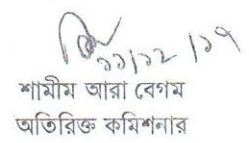 ১১/১২/১৭
শামীম আরা বেগম
অতিরিক্ত কমিশনার